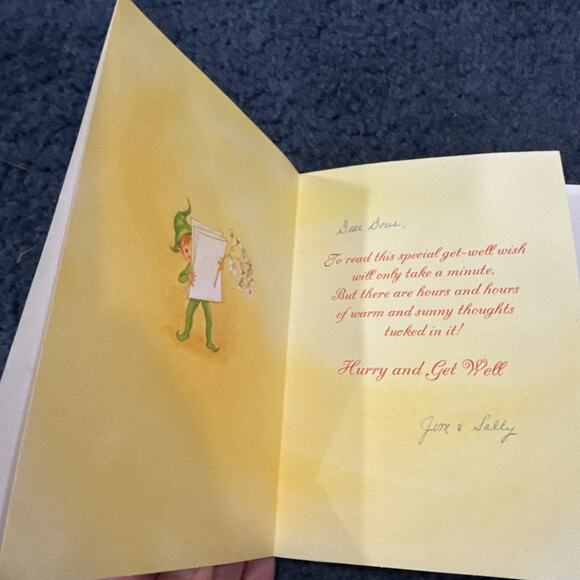 Dear Doris,
To read this special get-well wish
will only take a minute,
But there are hours and hours
of warm and sunny thoughts
tucked in it!
Hurry and Get Well
Jim & Sally